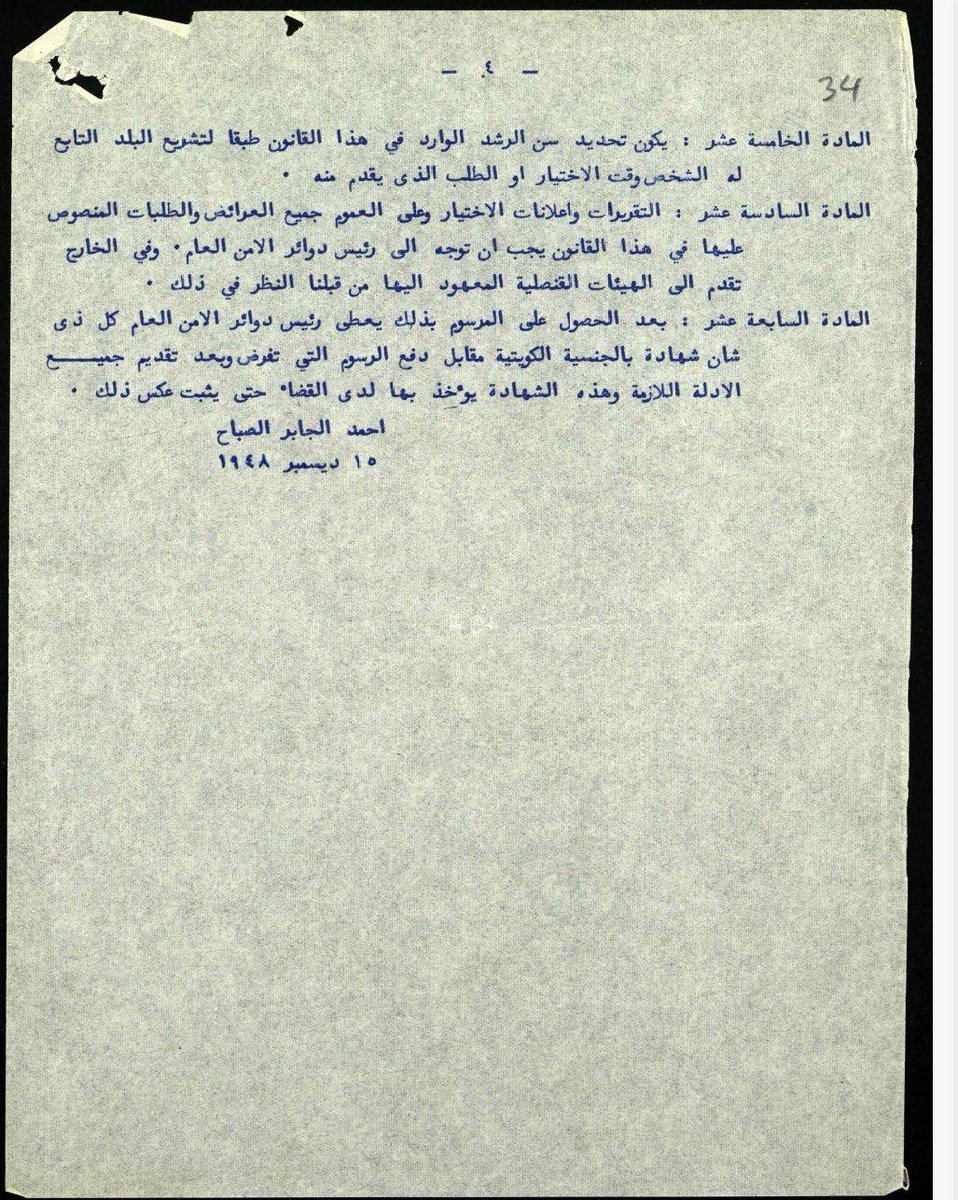 - ٤ -
34
المادة الخامسة عشر : يكون تحديد سن الرشد الوارد في هذا القانون طبقا لتشريع البلد التابع
له الشخص وقت الاختيار او الطلب الذى يقدم منه ٠
المادة السادسة عشر : التقريرات واعلانات الاختيار وعلى العموم جميع العرائض والطلبات المنصوص
عليها في هذا القانون يجب ان توجه الى رئيس دوائر الامن العام ٠ وفي الخارج
تقدم الى الهيئات القنصلية المعهود اليها من قبلنا النظر في ذلك ٠
المادة السابعة عشر : بعد الحصول على المرسوم بذلك يعطى رئيس دوائر الامن العام كل ذى
شان شهادة بالجنسية الكويتية مقابل دفع الرسوم التي تفرض وبعد تقديم جميـــــع
الادلة اللازمة وهذه الشهادة يوٴخذ بها لدى القضاٴ حتى يثبت عكس ذلك ٠
احمد الجابر الصباح
١٥ ديسمبر ١٩٤٨